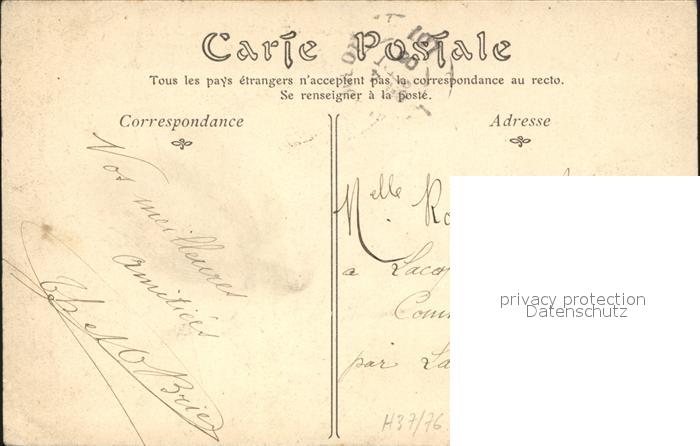 Carte Postale
Tous les pays étrangers n'acceptent pas la correspondance au recto.
Se renseigner à la poste.
Correspondance
Adresse
Vos meilleures
amitiés
Melle
a
par
privacy protection
Datenschutz
H37/76